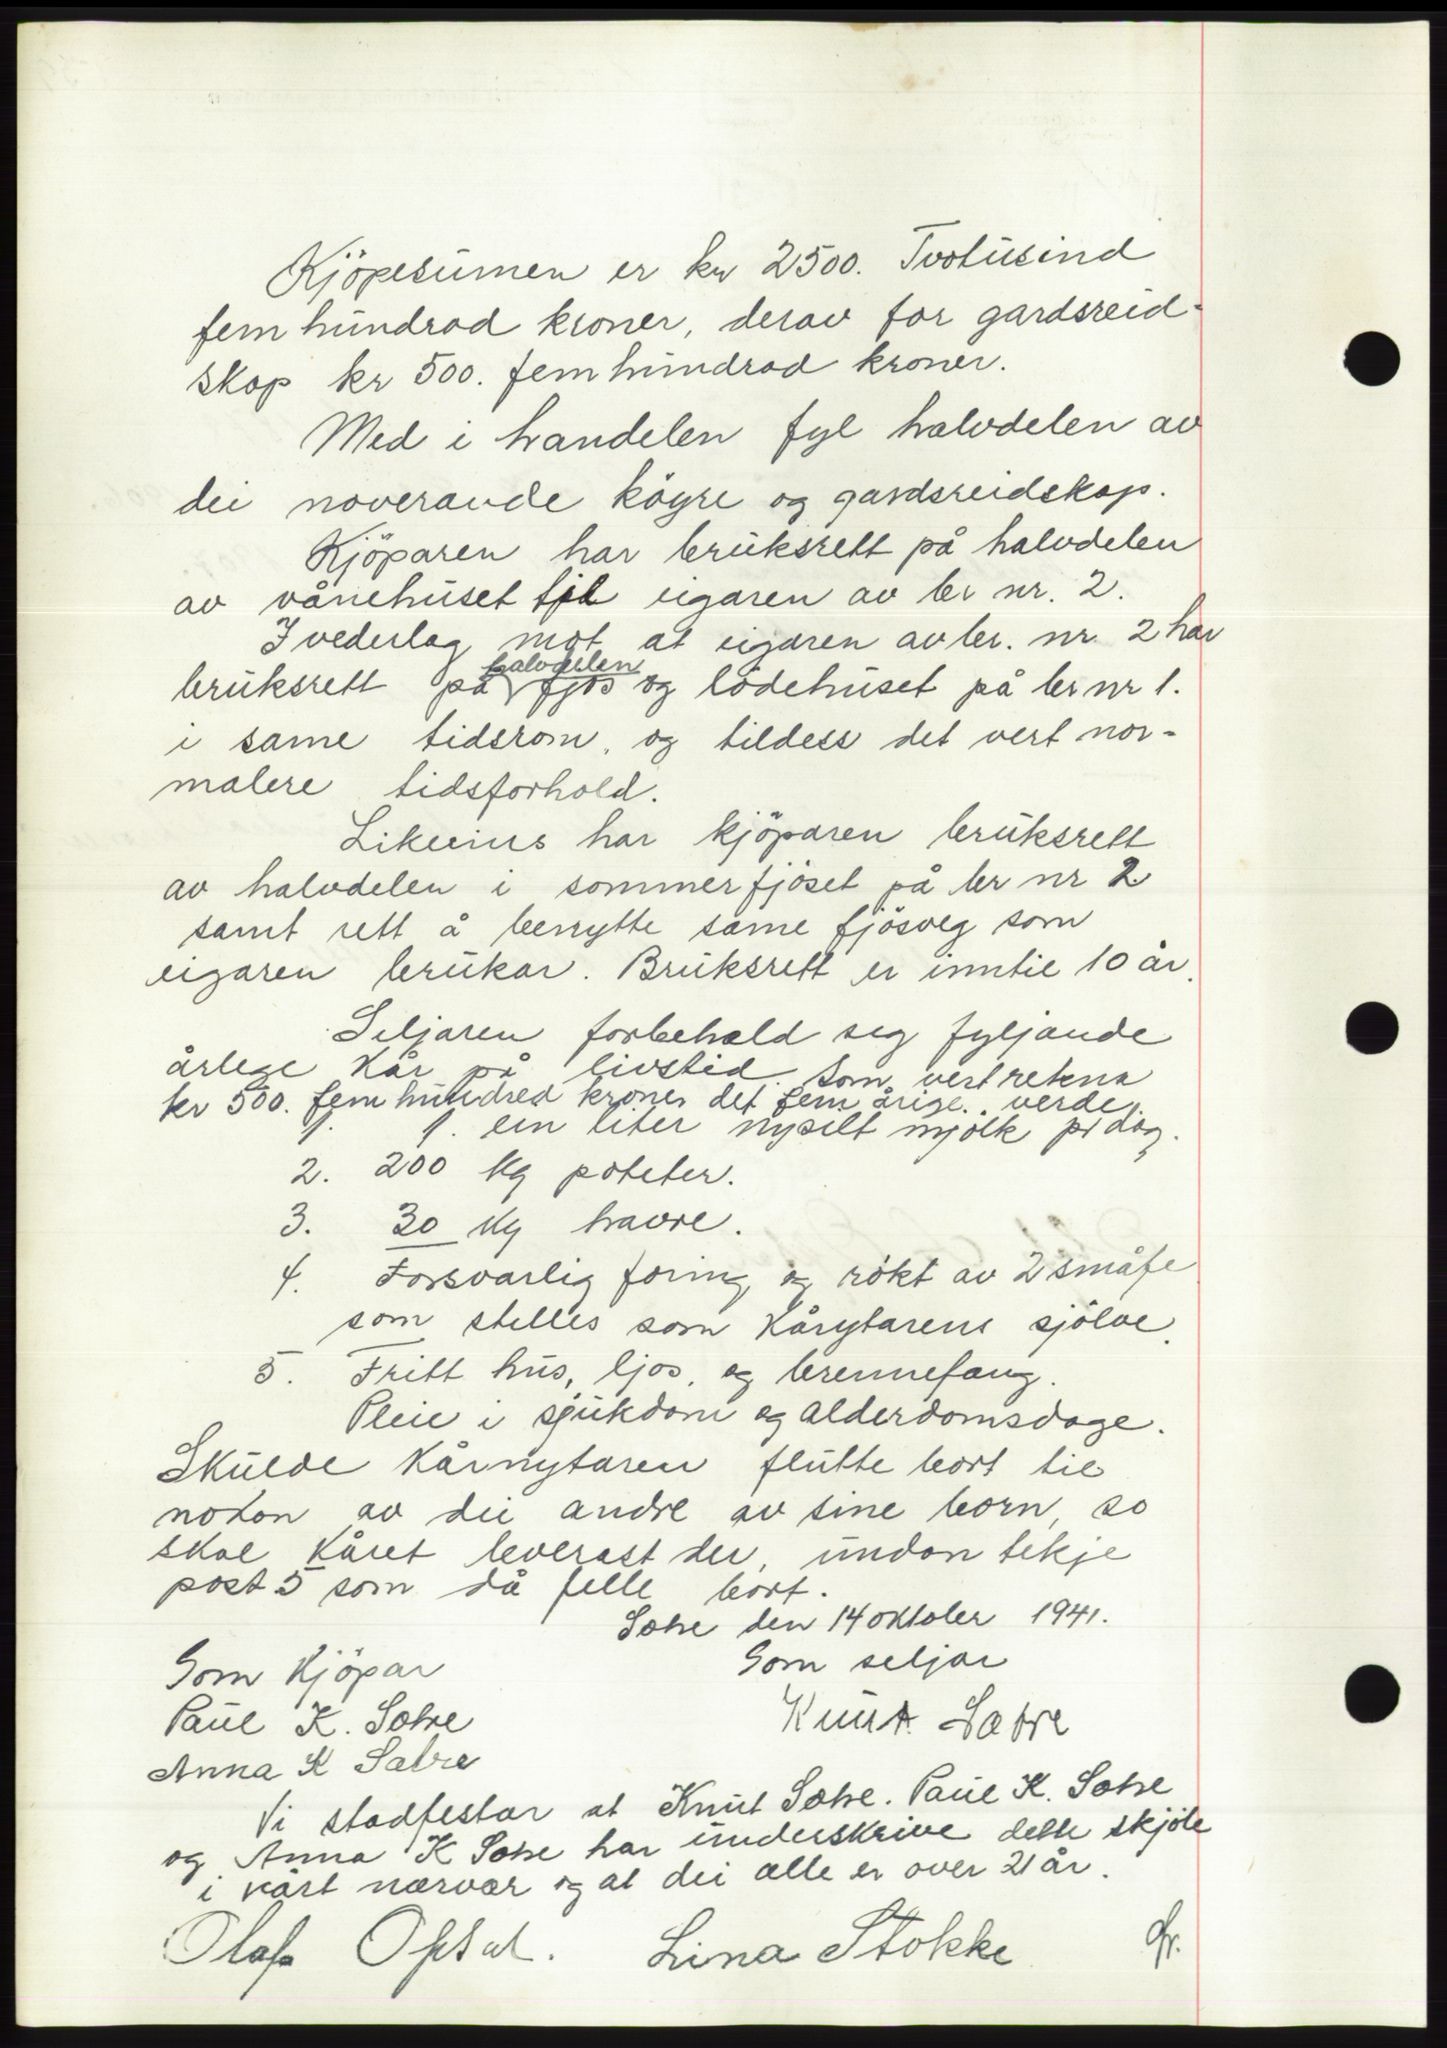 Kjöpesumen er kr 2500. Tvotusind
fem hundrad kroner, derav for gardsreid-
skap kr 500. fem hundrad kroner.
Med i handelen fyl halvdelen av
dei noverande köyre og gardsreidskap.
Kjöparen har bruksrett på halvdelen
av vånehuset til eigaren av br nr. 2.
I vederlag mot at eigaren av br. nr 2 har
bruksrett på halvdelen fjös og lödehuset på br nr 1.
i same tidsrom, og tildess det vert nor-
malere tidsforhold.
Likeeins har kjöparen bruksrett
av halvdelen i sommerfjöset på br nr 2
samt rett å benytte same fjösveg som
eigaren brukar. Bruksrett er inntil 10 år.
Seljaren forbehald seg fyljande
årlege kår på livstid som vert rekna
kr 500. fem hundred kroner det fem årige verde.
1. 1. ein liter nysilt mjölk pr dag.
2. 200 kg poteter.
3. 30 kg havre.
4. Forsvarlig foring, og rökt av 2 småfe
som stelles som Kårytarens sjölve.
5. Fritt hus, ljos, og brennefang.
Pleie i sjukdom og alderdomsdage.
Skulde Kårnytaren flutte bort til
nokon av dei andre av sine born, so
skal Kåret leverast der, undan tekje
post 5 som då felle bort.
Sætre den 14 oktober 1941.
Som Kjöpar Som seljar
Paul K. Sætre Knut Sætre
Anna K Sætre
Vi stadfestar at Knut Sætre. Paul K. Sætre
og Anna K Sætre har underskrive dette skjöte
i vårt nærvær og at dei alle er over 21 år.
Olaf Opsal. Lina Stokke